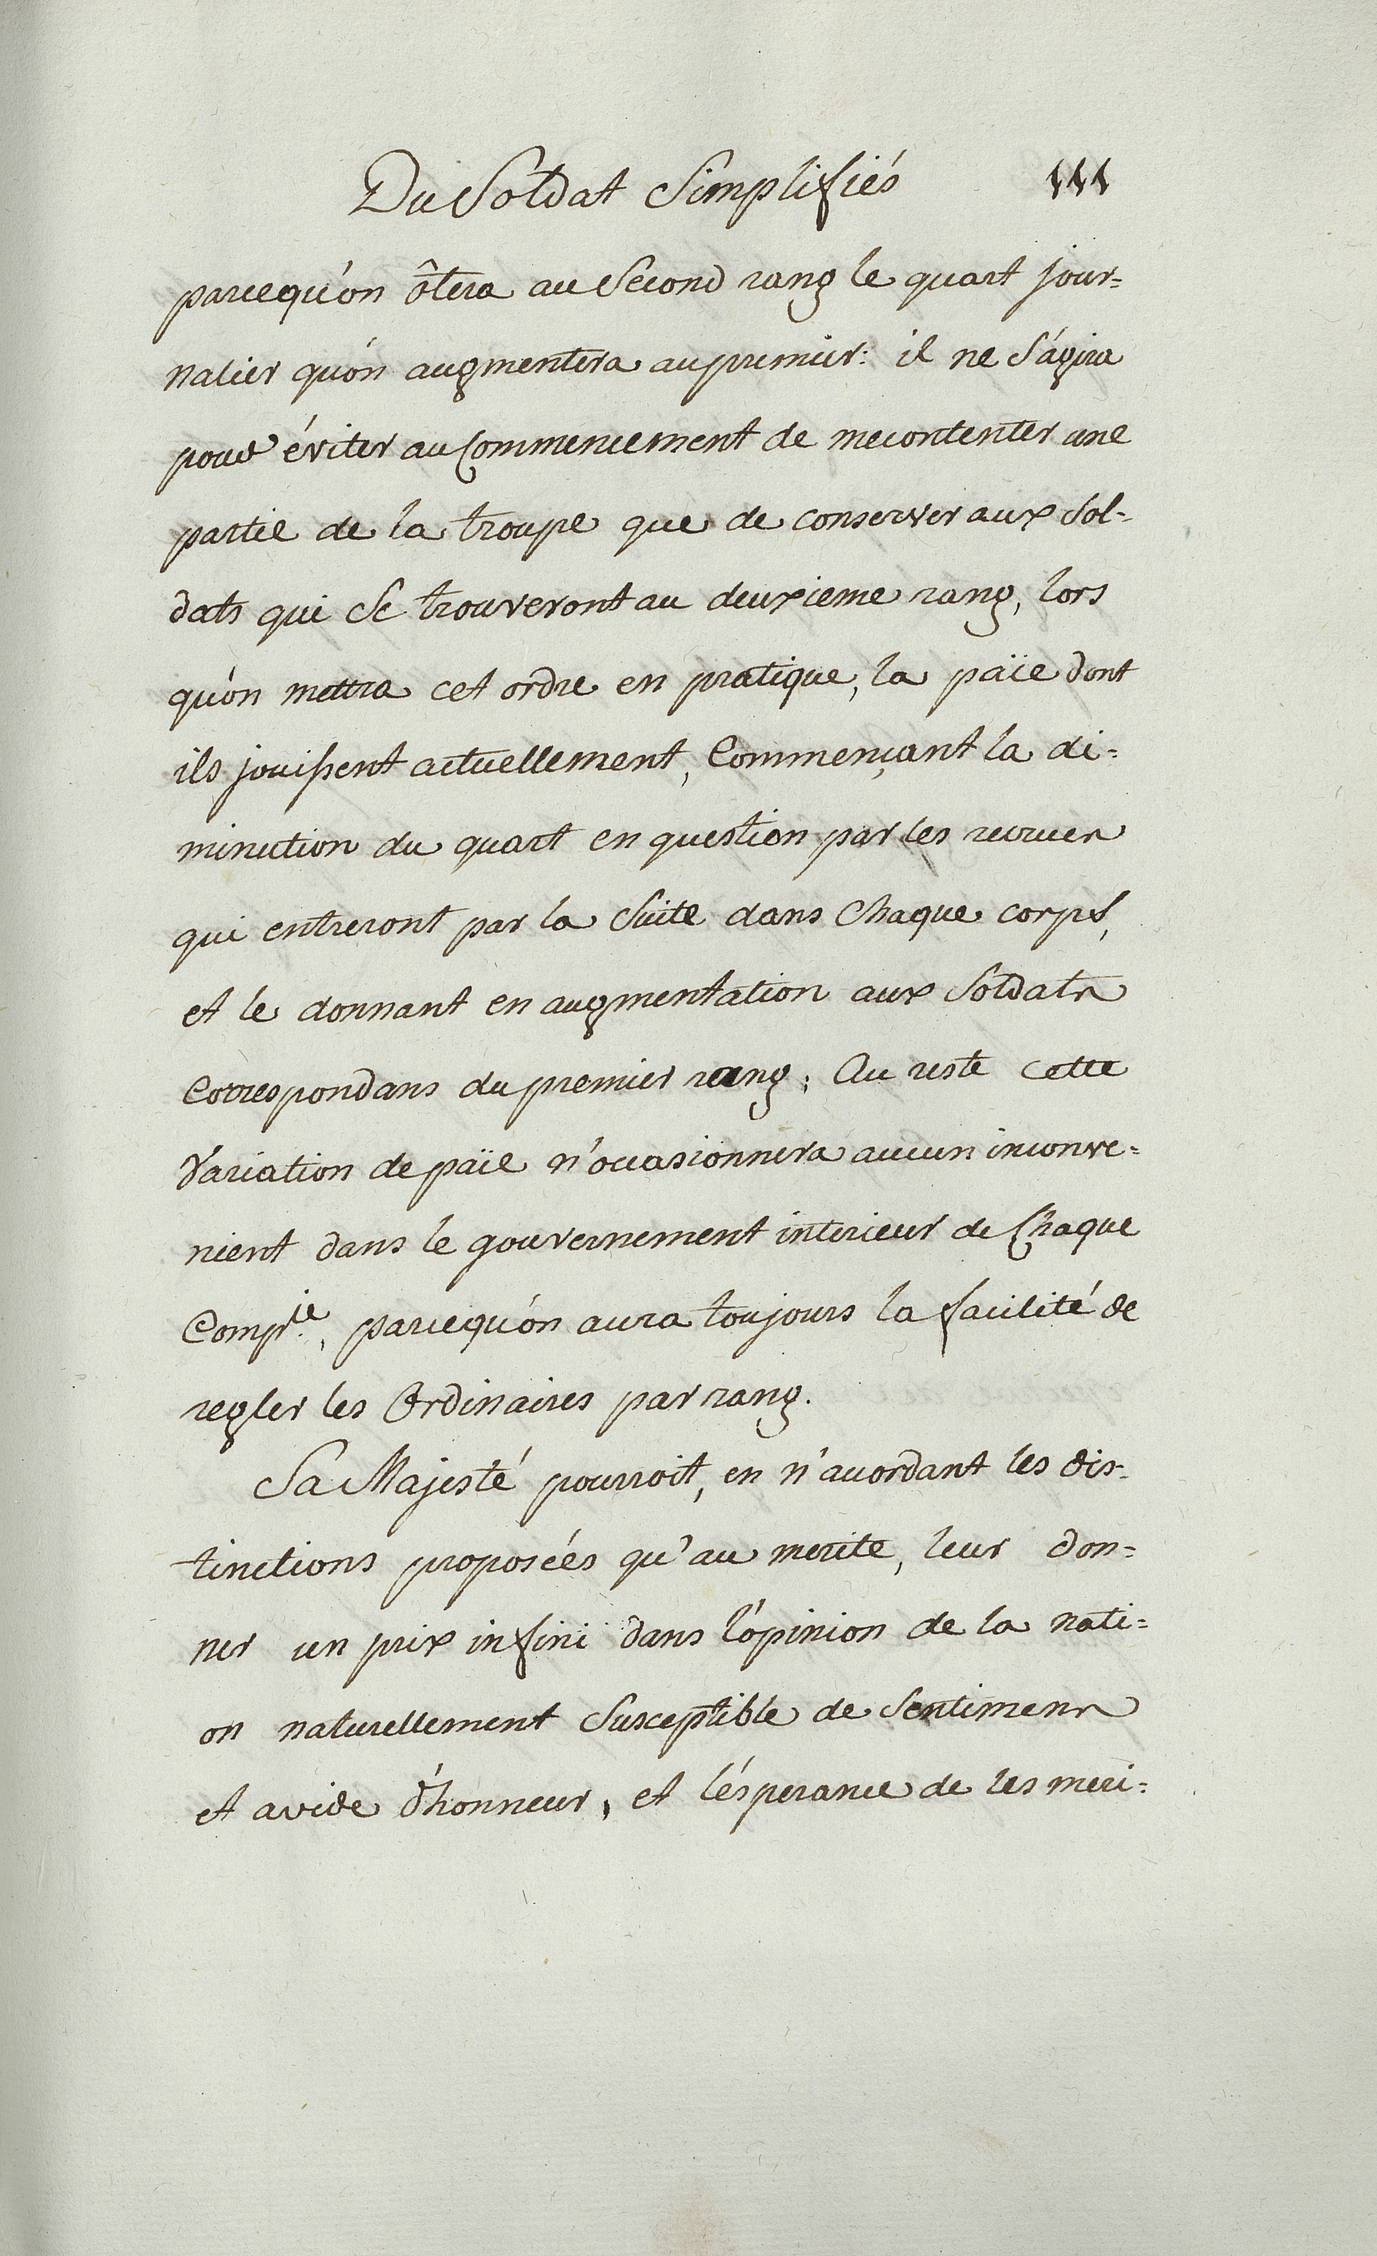 Du Soldat Simplifiés 111
parcequ'on ôtera au Second rang le quart jour=
nalier qu'on augmentera au premier: il ne s'agira
pour éviter au Commencement de mecontenter une
partie de la troupe que de conserver aux Sol-
dats qui Se trouveront au deuxieme rang, lors
qu'on mettra cet ordre en pratique, la païe dont
ils jouissent actuellement, Commençant la di=
minution du quart en question par les recrues
qui entreront par la Suite dans Chaque corps,
et le donnant en augmentation aux Soldats
Correspondans du premier rang; Au reste cette
Variation de païe n'occasionnera aucun inconve=
nient dans le gouvernement interieur de Chaque
Comp.ie, parcequ'on aura toujours la facilité de
regler les Ordinaires par rang.
Sa Majesté pourroit, en n'accordant les dis-
tinctions proposées qu'au merite, leur don=
ner un prix infini dans l'opinion de la nati=
on naturellement Susceptible de Sentimens
et avide d'honneur, et l'ésperance de les meri=